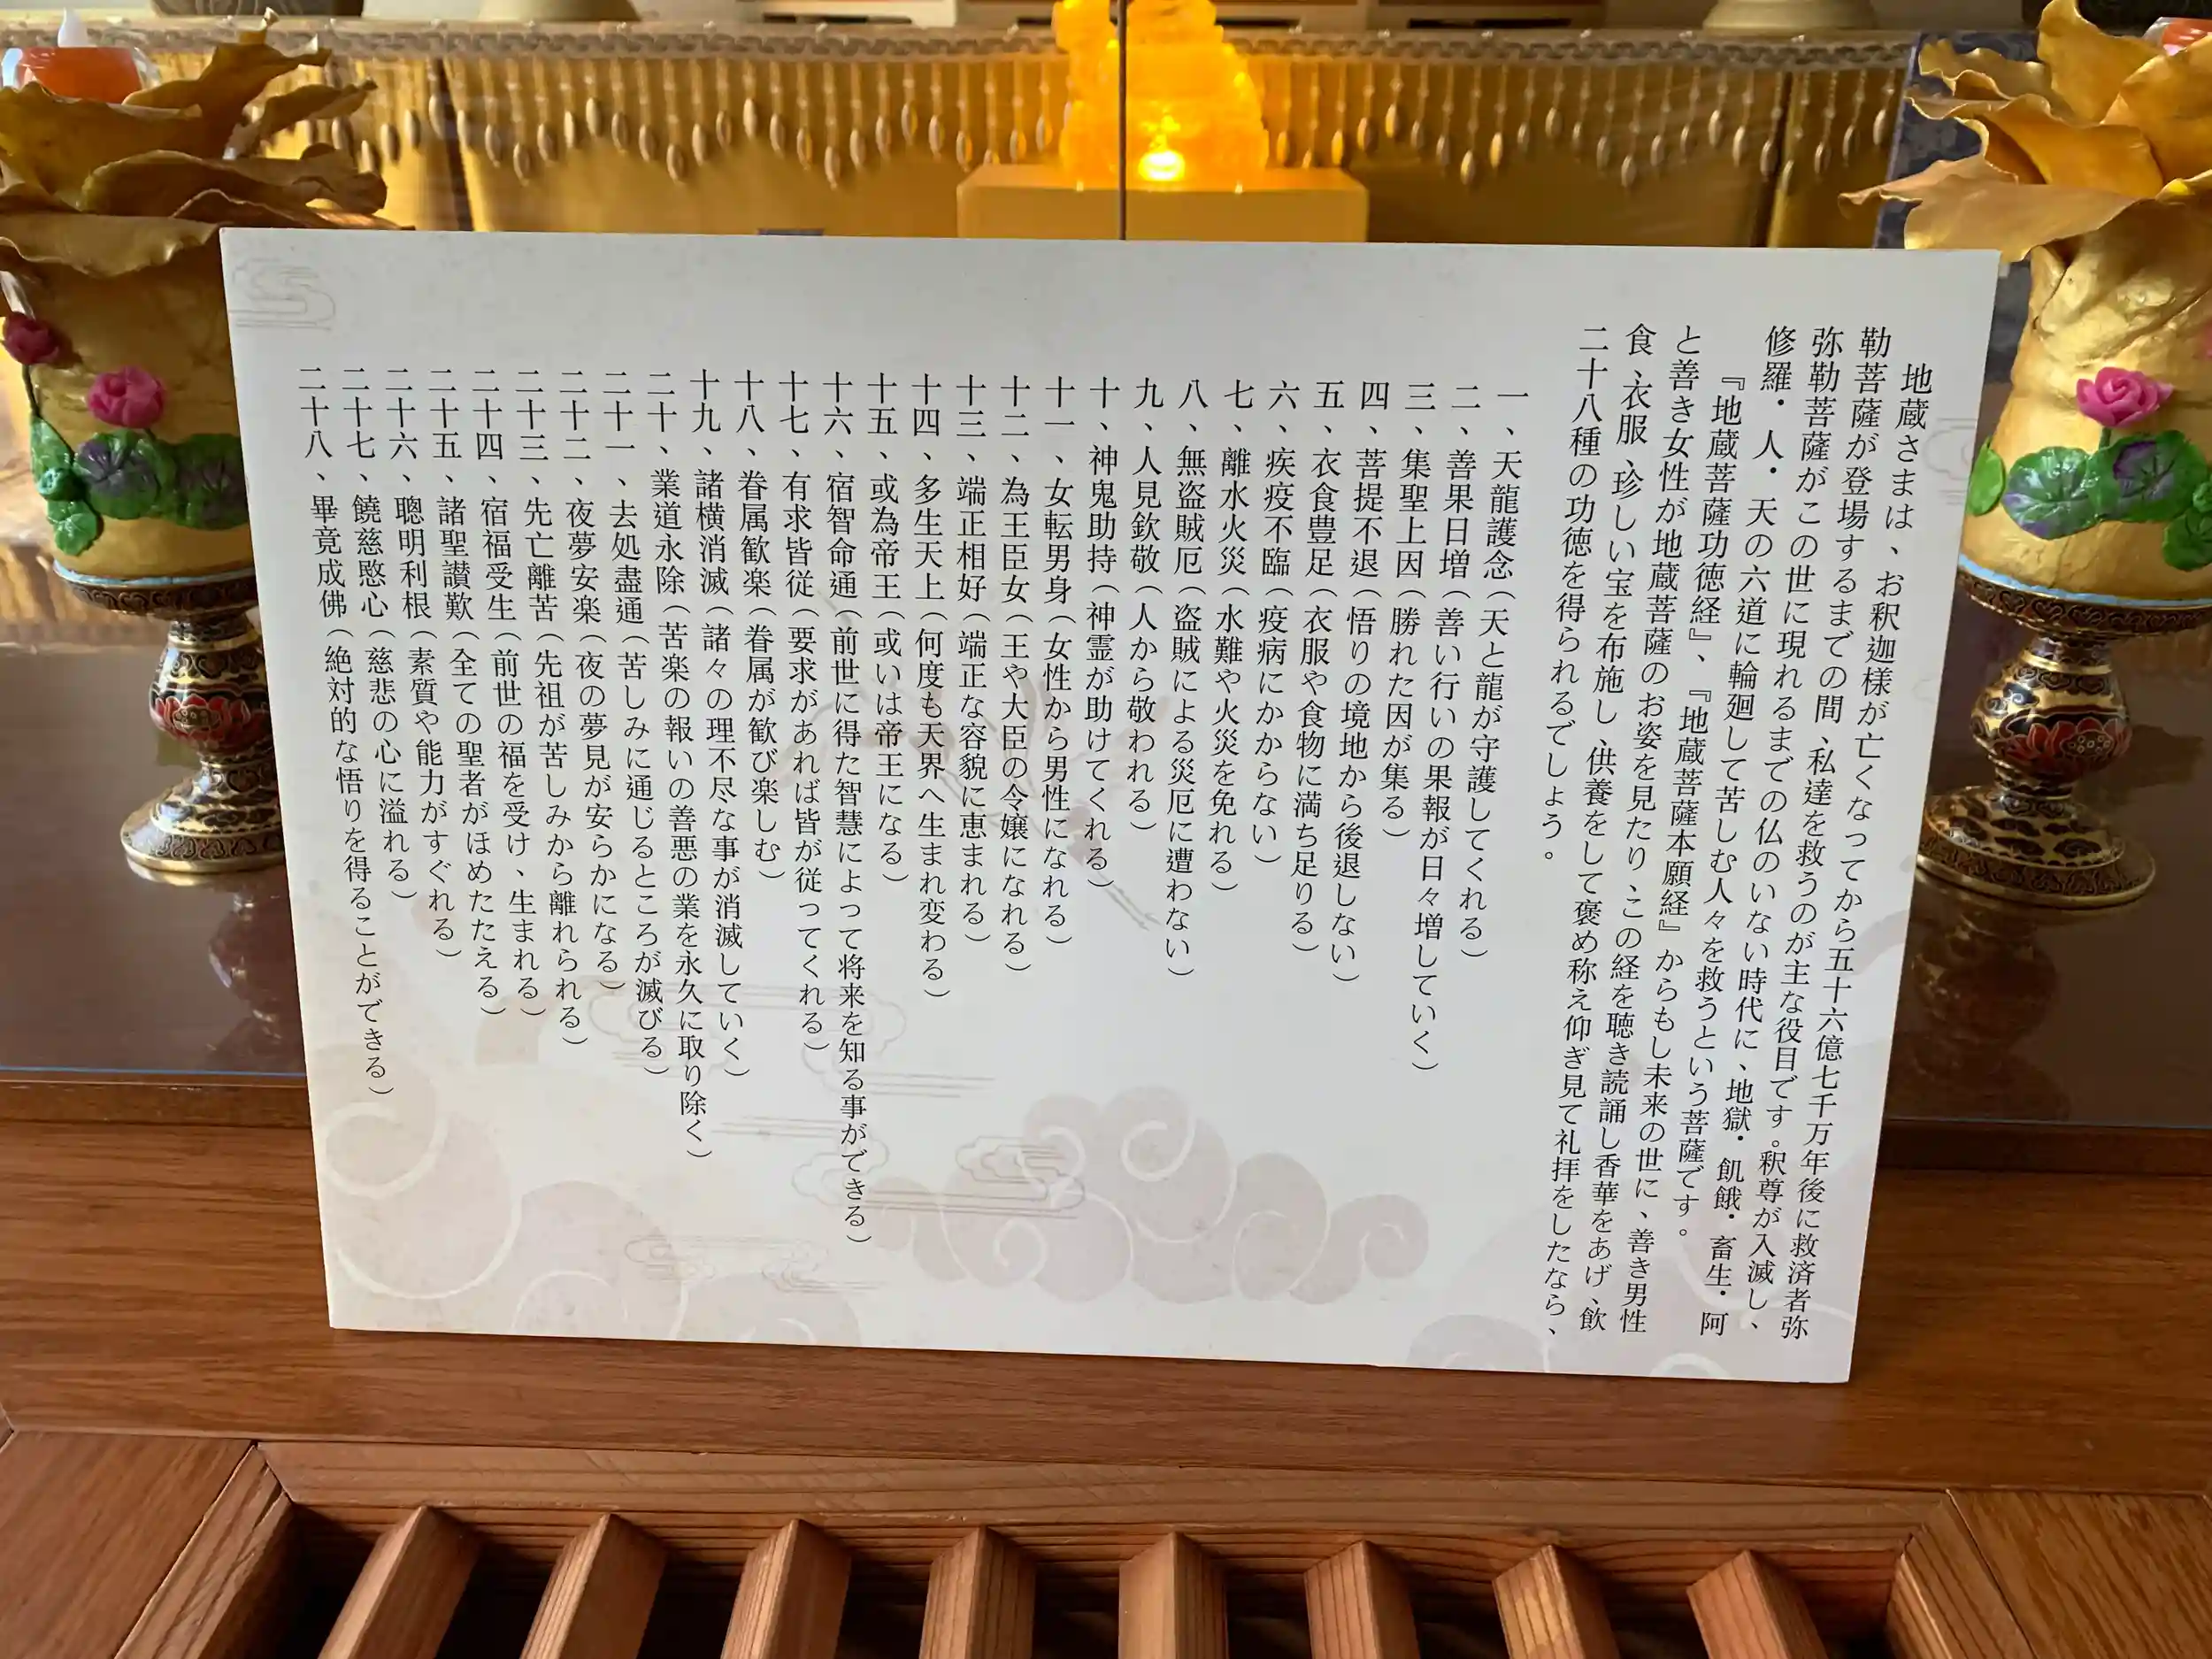 地蔵さまは、お釈迦様が亡くなってから五十六億七千万年後に救済者弥
勒菩薩が登場するまでの間、私達を救うのが主な役目です。釈尊が入滅し、
弥勒菩薩がこの世に現れるまでの仏のいない時代に、地獄・飢餓・畜生・阿
修羅・人・天の六道に輪廻して苦しむ人々を救うという菩薩です。
『地蔵菩薩功徳経』、『地蔵菩薩本願経』からもし未来の世に、善き男性
と善き女性が地蔵菩薩のお姿を見たり、この経を聴き読誦し香華をあげ、飲
食、衣服、珍しい宝を布施し、供養をして褒め称え仰ぎ見て礼拝をしたなら、
二十八種の功徳を得られるでしょう。
一、天龍護念(天と龍が守護してくれる)
二、善果日増(善い行いの果報が日々増していく)
三、集聖上因(勝れた因が集る)
四、菩提不退(悟りの境地から後退しない)
五、衣食豊足(衣服や食物に満ち足りる)
六、疾疫不臨(疫病にかからない)
七、離水火災(水難や火災を免れる)
八、無盗賊厄(盗賊による災厄に遭わない)
九、人見欽敬(人から敬われる)
十、神鬼助持(神霊が助けてくれる)
十一、女転男身(女性から男性になれる)
十二、為王臣女(王や大臣の令嬢になれる)
十三、端正相好(端正な容貌に恵まれる)
十四、多生天上(何度も天界へ生まれ変わる)
十五、或為帝王(或いは帝王になる)
十六、宿智命通(前世に得た智慧によって将来を知る事ができる)
十七、有求皆従(要求があれば皆が従ってくれる)
十八、眷属歓楽(眷属が歓び楽しむ)
十九、諸横消滅(諸々の理不尽な事が消滅していく)
二十、業道永除(苦楽の報いの善悪の業を永久に取り除く)
二十一、去処盡通(苦しみに通じるところが滅びる)
二十二、夜夢安楽(夜の夢見が安らかになる)
二十三、先亡離苦(先祖が苦しみから離れられる)
二十四、宿福受生(前世の福を受け、生まれる)
二十五、諸聖讃歎(全ての聖者がほめたたえる)
二十六、聰明利根(素質や能力がすぐれる)
二十七、饒慈愍心(慈悲の心に溢れる)
二十八、畢竟成佛(絶対的な悟りを得ることができる)